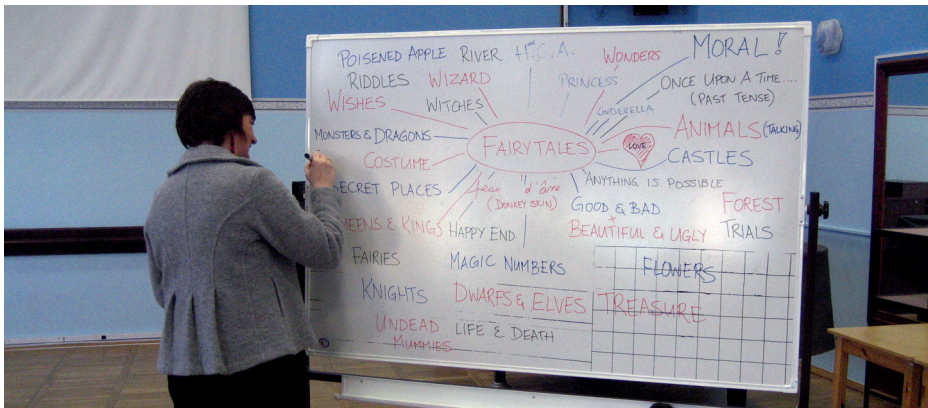 POISENED APPLE RIVER H.C.A. WONDERS MORAL!
RIDDLES WIZARD PRINCESS ONCE UPON A TIME....
(PAST TENSE)
WISHES WITCHES CINDERELLA
MONSTERS & DRAGONS FAIRYTALES LOVE ANIMALS (TALKING)
COSTUME CASTLES
SECRET PLACES Peau d'âne ANYTHING IS POSSIBLE
(DONKEY SKIN) GOOD & BAD FOREST
+
QUEENS & KINGS HAPPY END BEAUTIFUL & UGLY TRIALS
FAIRIES MAGIC NUMBERS FLOWERS
KNIGHTS DWARFS & ELVES TREASURE
UNDEAD LIFE & DEATH
MUMMIES